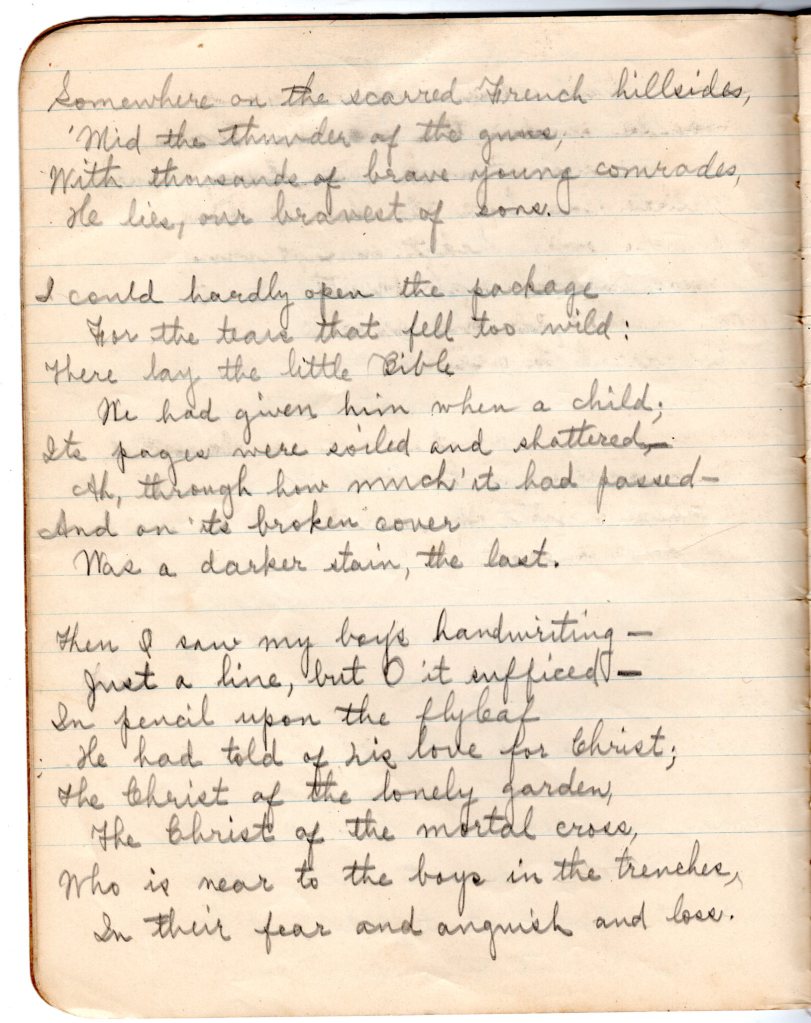 Somewhere on the scarred French hillsides,
'Mid the thunder of the guns,
With thousands of brave young comrades,
He lies, our bravest of sons.
I could hardly open the package
For the tears that fell too wild:
There lay the little Bible
We had given him when a child;
Its pages were soiled and shattered,—
Ah, through how much it had passed—
And on its broken cover
Was a darker stain, the last.
Then I saw my boy's handwriting—
Just a line, but O it sufficed—
In pencil upon the flyleaf
He had told of his love for Christ;
The Christ of the lonely garden,
The Christ of the mortal cross,
Who is near to the boys in the trenches,
In their fear and anguish and loss.